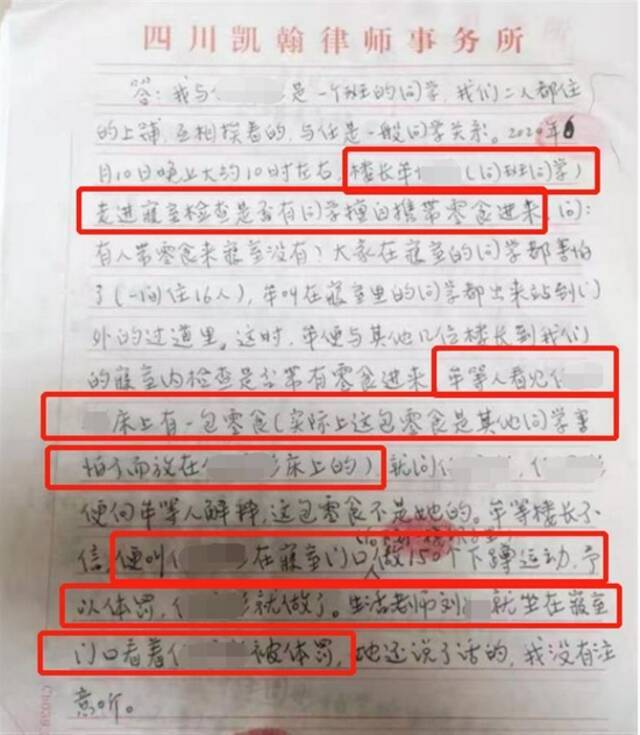 四川凯翰律师事务所
答:我与任 是一个班的同学,我们二人都住
的上铺,互相挨着的,与任是一般同学关系。2020年6
月10日晚上大约10时左右,楼长牟 (同班同学)
走进寝室检查是否有同学擅自携带零食进来,问:
有人带零食来寝室没有)大家在寝室的同学都害怕
了(一间住16人),牟叫在寝室里的同学都出来站到门
外的过道里。这时,牟便与其他几位楼长到我们
的寝室内检查是否带有零食进来,牟等人看见任
床上有一包零食(实际上这包零食是其他同学害
怕了而放在任 床上的),就问任 ,任
便向牟等人解释,这包零食不是她的。牟等楼长不
信,便叫任 在寝室门口做150个下蹲运动,予
以体罚,任 就做了。生活老师刘 就坐在寝室
门口看着任 被体罚,她还说了话的,我没有注
意听。